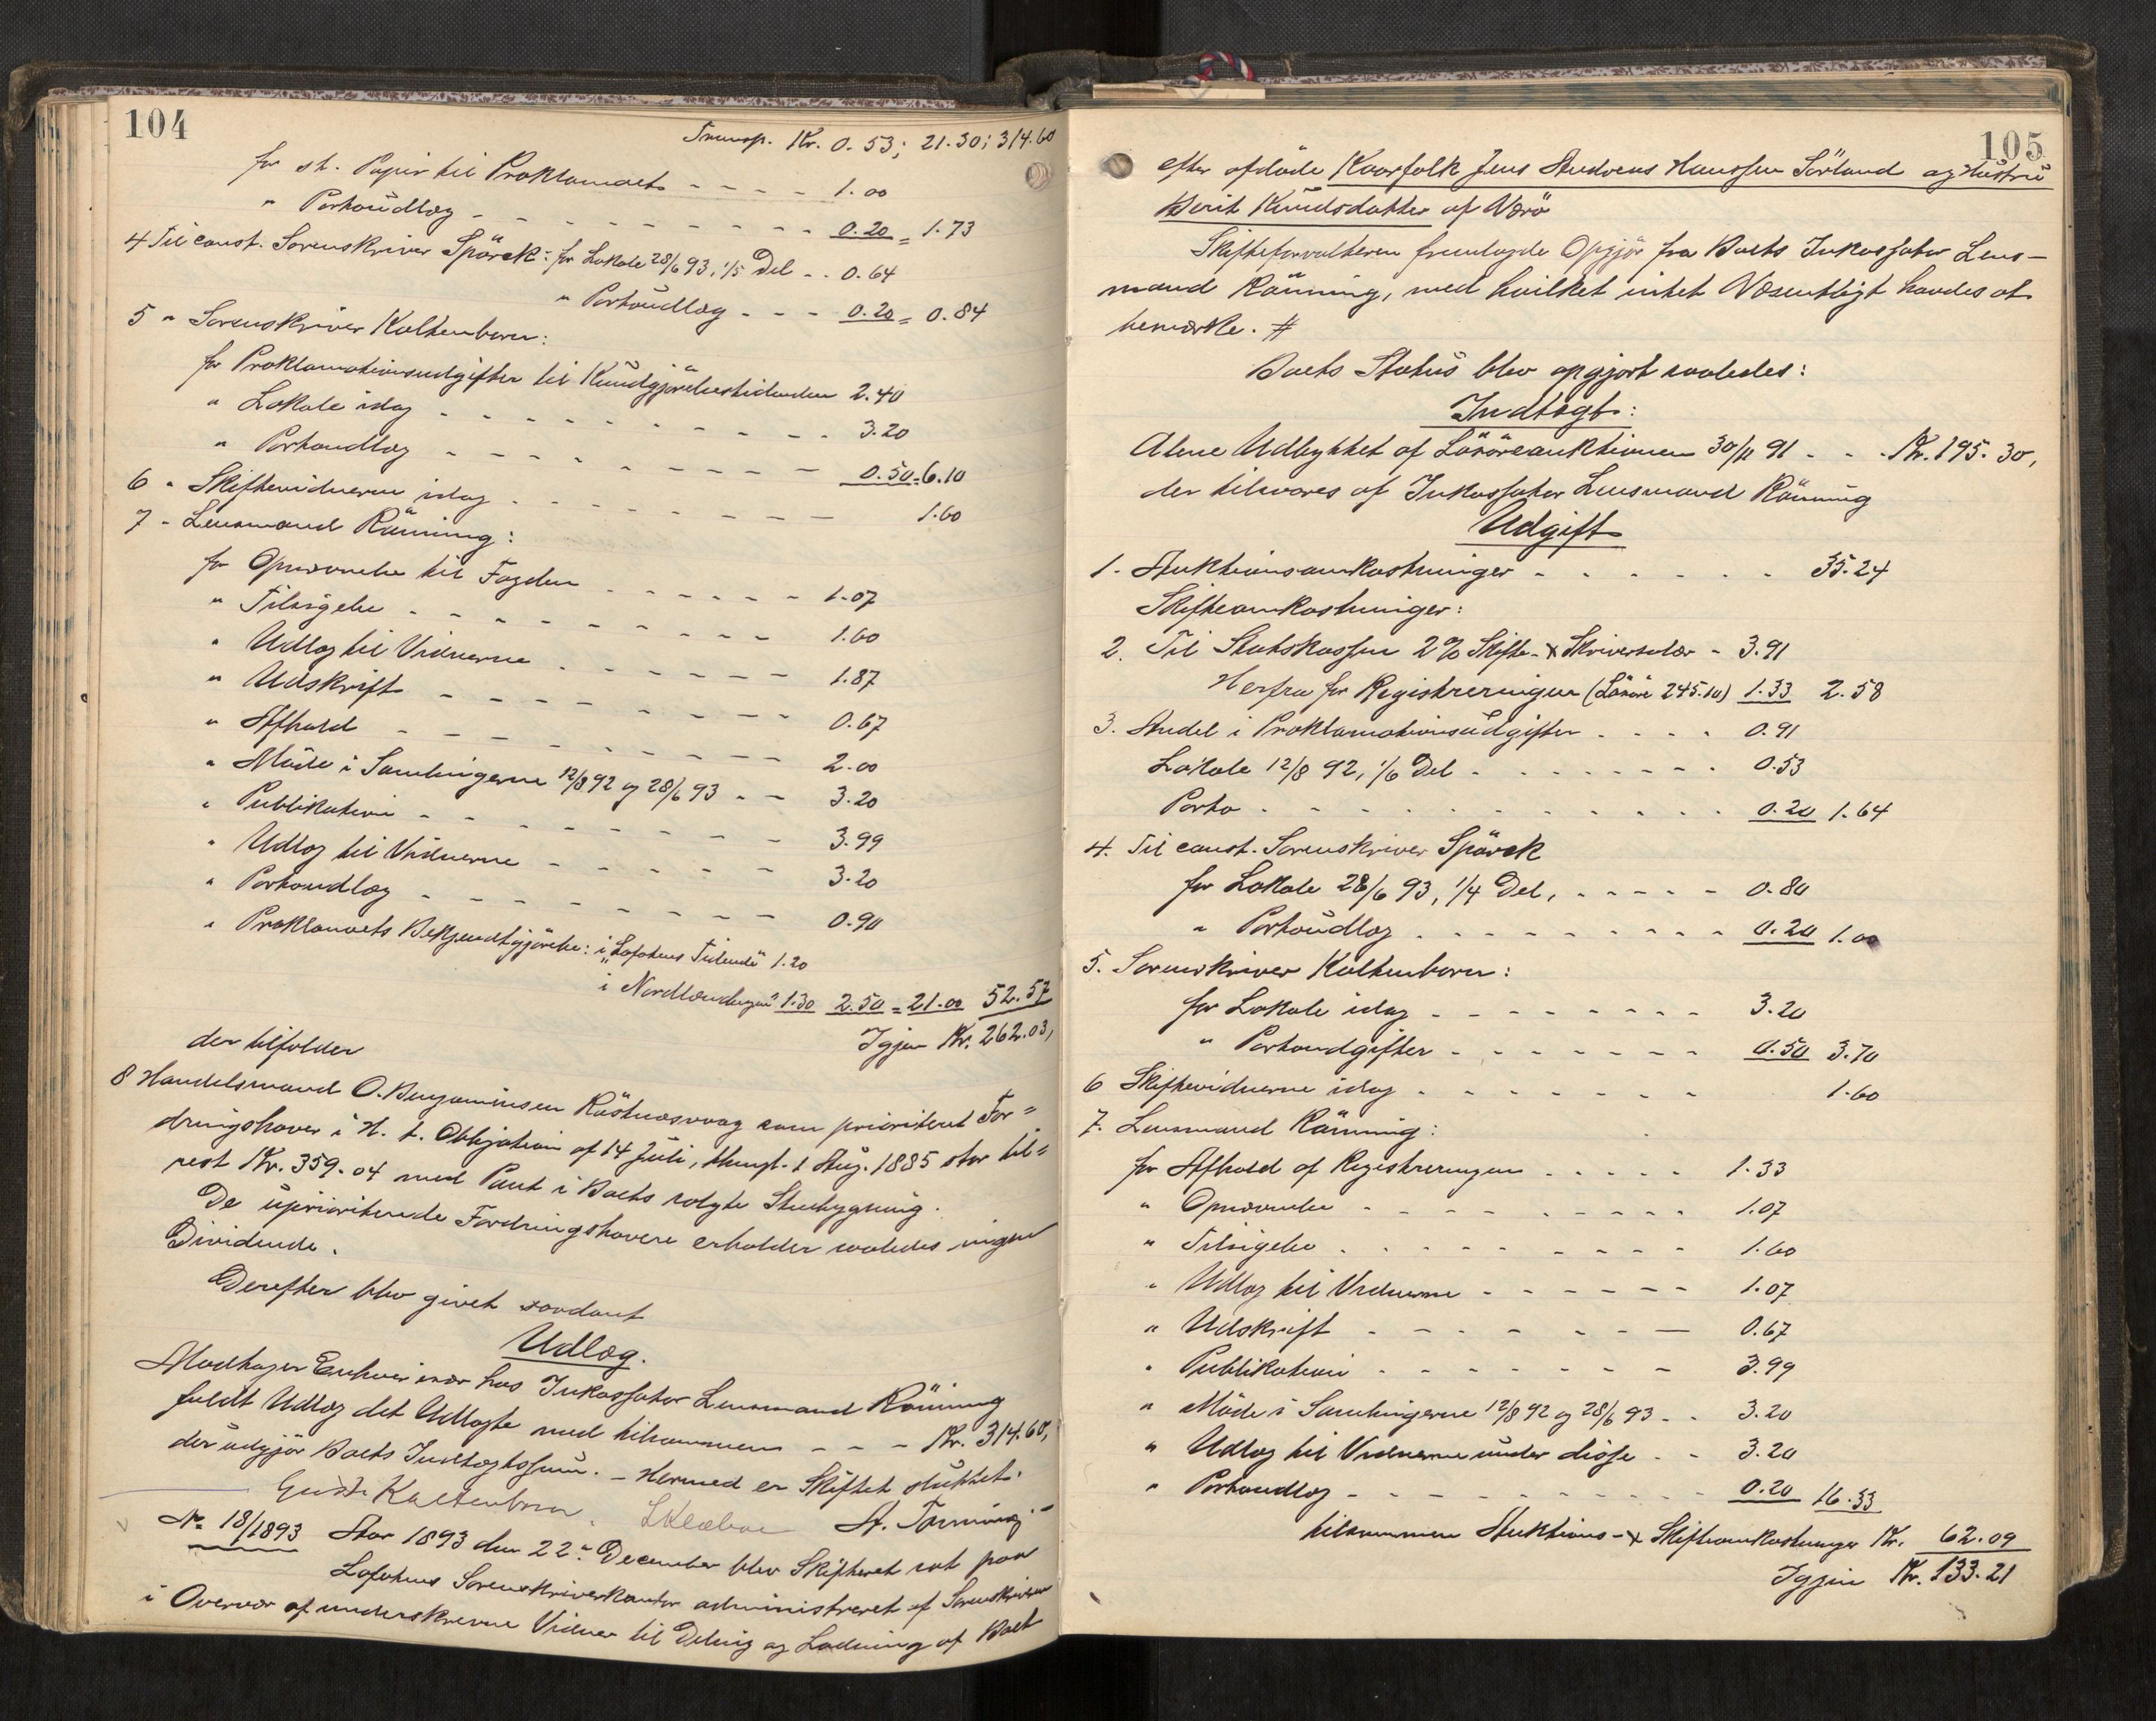 104
Transp. Kr. 0.53; 21.30; 314.60
for st. Papir til Proklamaet - - - - 1.00
" Portoudlæg - - - - - - - - 0.20 = 1.73
4 Til const. Sorenskriver Spörck: for Lokale 28/6 93, 1/5 Del - - 0.64
" Portoudlæg - - - 0.20 = 0.84
5 " Sorenskriver Kaltenborn:
for Proklamationsudgifter til Kundgjörelsestidenden 2.40
" Lokale idag - - - - - - - - - - 3.20
" Portoudlæg - - - - - - - - - 0.50 = 6.10
6 " Skiftevidnerne idag - - - - - - - - 1.60
7 " Lensmand Rönning:
for Opnævnelse til Fogden - - - - - - 1.07
" Tilsigelse - - - - - - - - - 1.60
" Udlæg til Vidnerne - - - - - - 1.87
" Udskrift - - - - - - - - - 0.67
" Afhold - - - - - - - - - 2.00
" Möde i Samlingerne 12/8 92 og 28/6 93 - - 3.20
" Publikation - - - - - - - - - 3.99
" Udlæg til Vidnerne - - - - - - 3.20
" Portoudlæg - - - - - - - - 0.90
" Proklamaets Bekjendtgjörelse: i "Lofotens Tidende" 1.20
i Nordlændingen" 1.30 2.50 = 21.00 52.57
Igjen Kr. 262.03,
der tilfalder
8 Handelsmand O. Benjaminsen Röstnesvaag som prioriteret For=
dringshaver i H. t. Obligation af 14 Juli, thingl. 1 Aug. 1885 stor til=
rest Kr. 359.04 med Pant i Boets solgte Stuebygning.
De uprioriterede Fordringshavere erholder saaledes ingen
Dividende.
Derefter blev givet saadant
Udlæg.
Modtager Enhver især hos Inkassator Lensmand Rönning
fuldt Udlæg det Udlagte med tilsammen - - - Kr. 314.60,
der udgjör Boets Indtægtssum. - Hermed er Skiftet sluttet.
Kaltenborn. A. Tönning
No 18/1893 Aar 1893 den 22de December blev Skifteret sat paa
Lofotens Sorenskriverkontor administreret af Sorenskriveren
i Overvær af underskrevne Vidner til Deling og Lodning af Boet
105
efter afdöde Kaarfolk Jens Andreas Hanssen Sörland og Hustru
Berit Knudsdatter af Værö
Skifteforvalteren fremlagde Opgjör fra Boets Inkassator Lens-
mand Rönning, med hvilket intet Væsentligt havdes at
bemærke. #
Boets Status blev opgjort saaledes:
Indtægt:
Alene Udbyttet af Lösöreauktionen 30/11 91 - - - Kr. 195.30,
der tilsvares af Inkassator Lensmand Rönning
Udgift
1. Auktionsomkostninger - - - - - - 35.24
Skifteomkostninger:
2. Til Statskassen 2% Skifte- & Skriversalær - 3.91
Herfra for Registreringen (Lösöre 245.10) 1.33 2.58
3. Andel i Proklamationsudgifter - - - - 0.91
Lokale 12/8 92, 1/6 Del - - - - - - - - 0.53
Porto - - - - - - - - - - - - - 0.20 1.64
4. Til const. Sorenskriver Spörck
for Lokale 28/6 93, 1/4 Del, - - - - - 0.80
" Portoudlæg - - - - - - - - - - 0.20 1.00
5. Sorenskriver Kaltenborn:
for Lokale idag - - - - - - - - 3.20
" Portoudgifter - - - - - - - 0.50 3.70
6 Skiftevidnerne idag - - - - - - - 1.60
7. Lensmand Rönning:
for Afhold af Registreringen - - - - - 1.33
" Opnævnelse - - - - - - - - - - 1.07
" Tilsigelse - - - - - - - - - - 1.60
" Udlæg til Vidnerne - - - - - - 1.07
" Udskrift - - - - - - - 0.67
" Publikation - - - - - - - - 3.99
" Möde i Samlingerne 12/8 92 og 28/6 93 - - 3.20
" Udlæg til Vidnerne under disse - - 3.20
" Portoudlæg - - - - - - - - - - - 0.20 16.33
tilsammen Auktions- & Skifteomkostninger Kr. 62.09
Igjen Kr. 133.21